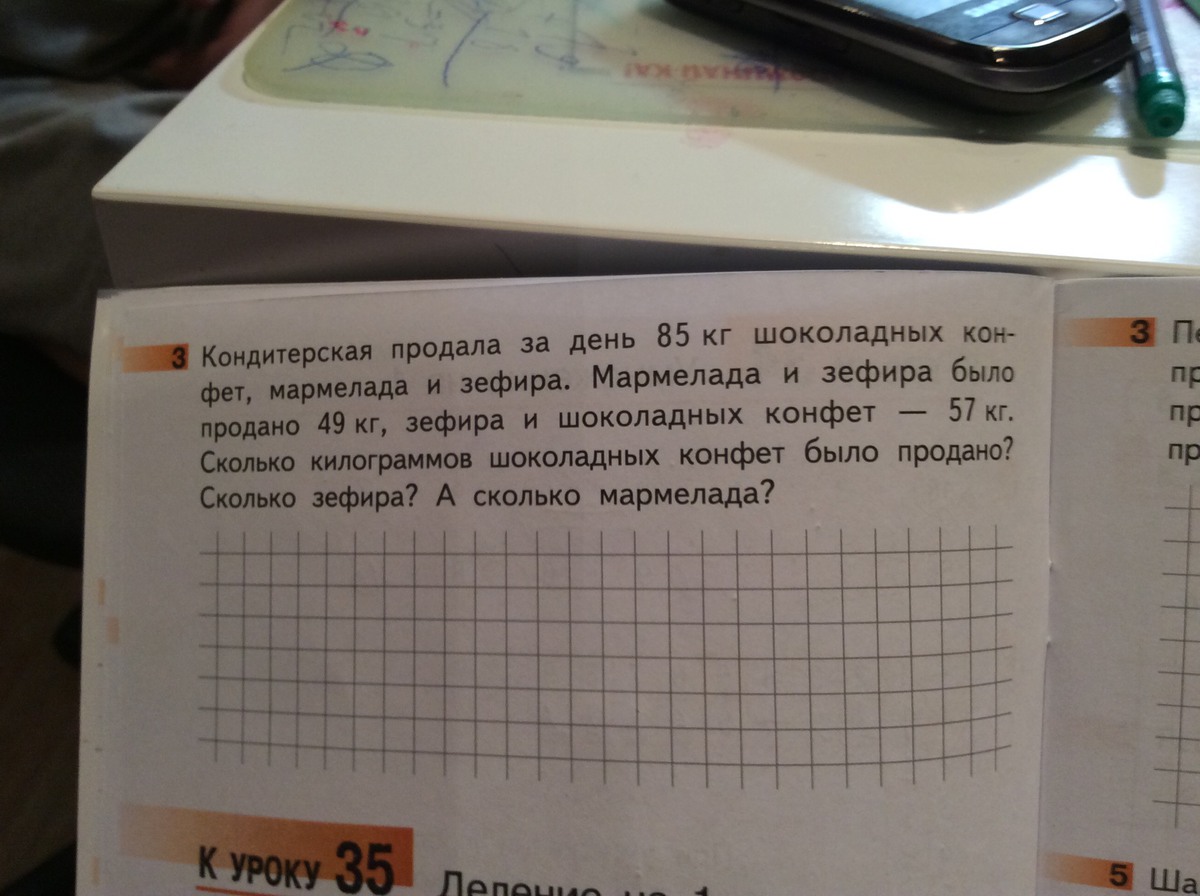 3 Кондитерская продала за день 85 кг шоколадных кон-
фет, мармелада и зефира. Мармелада и зефира было
продано 49 кг, зефира и шоколадных конфет — 57 кг.
Сколько килограммов шоколадных конфет было продано?
Сколько зефира? А сколько мармелада?
К УРОКУ 35
Деление на 1
3
5